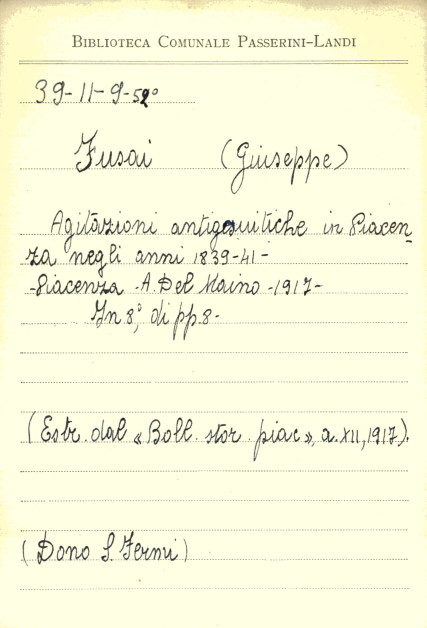 BIBLIOTECA COMUNALE PASSERINI-LANDI
39-11-9-52°
Fusai (Giuseppe)
Agitazioni antigesuitiche in Piacen
za negli anni 1839-41-
-Piacenza - A. Del Maino - 1917-
In 8°, di pp. 8-
(Estr. dal « Boll. stor. piac », a. XII, 1917).
(Dono S. Fermi)